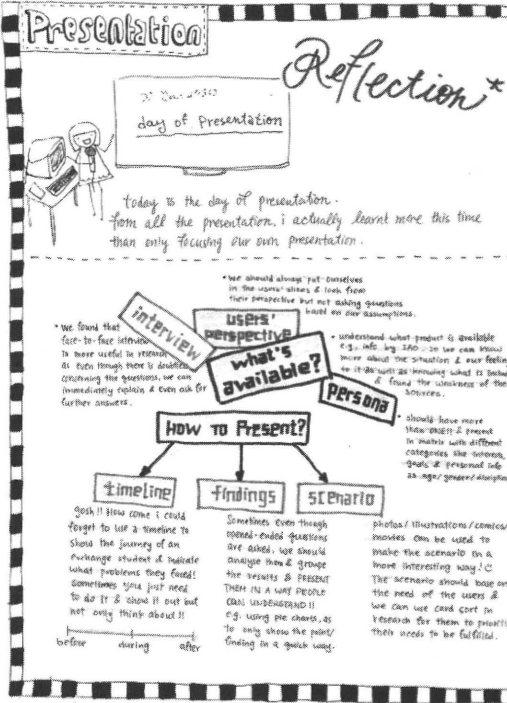 Presentation
Reflection*
day of Presentation
today is the day of presentation.
from all the presentation, i actually learnt more this time
than only focusing our own presentation.
• We should always put ourselves
in the users' shoes & look from
their perspective but not asking questions
based on our assumptions.
interview
users'
perspective
what's
available?
persona
• We found that
face-to-face interview
is more useful in research
as even though there is doubts
concerning the questions, we can
immediately explain & even ask for
further answers.
• understand what product is available
e.g. info by SAO. so we can know
more about the situation & our feeling
to it as well as knowing what is
& found the weakness of the
sources.
• should have more
than & present
in matrix with different
categories like interests,
goals & personal info
as age/gender/discipline
How to Present?
timeline
findings
scenario
gosh!! How come i could
forget to use a timeline to
show the journey of an
exchange student & indicate
what problems they faced!
Sometimes you just need
to do it & show it out but
not only think about!!
before during after
Sometimes even though
opened-ended questions
are asked, we should
analyse them & groupe
the results & PRESENT
THEM IN A WAY PEOPLE
CAN UNDERSTAND!!
e.g. using pie charts, as
to only show the point/
finding in a quick way.
photos/illustrations/comics/
movies can be used to
make the scenario in a
more interesting way!
The scenario should base on
the need of the users &
we can use card sort in
research for them to
their needs to be fulfilled.